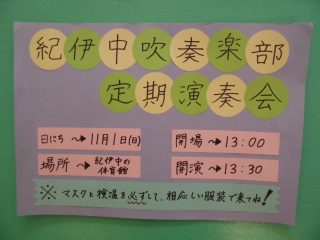 紀伊中吹奏楽部
定期演奏会
日にち→11月1日(日)
開場→13:00
場所→紀伊中の体育館
開演→13:30
※マスクと検温を必ずして、相応しい服装で来てね!